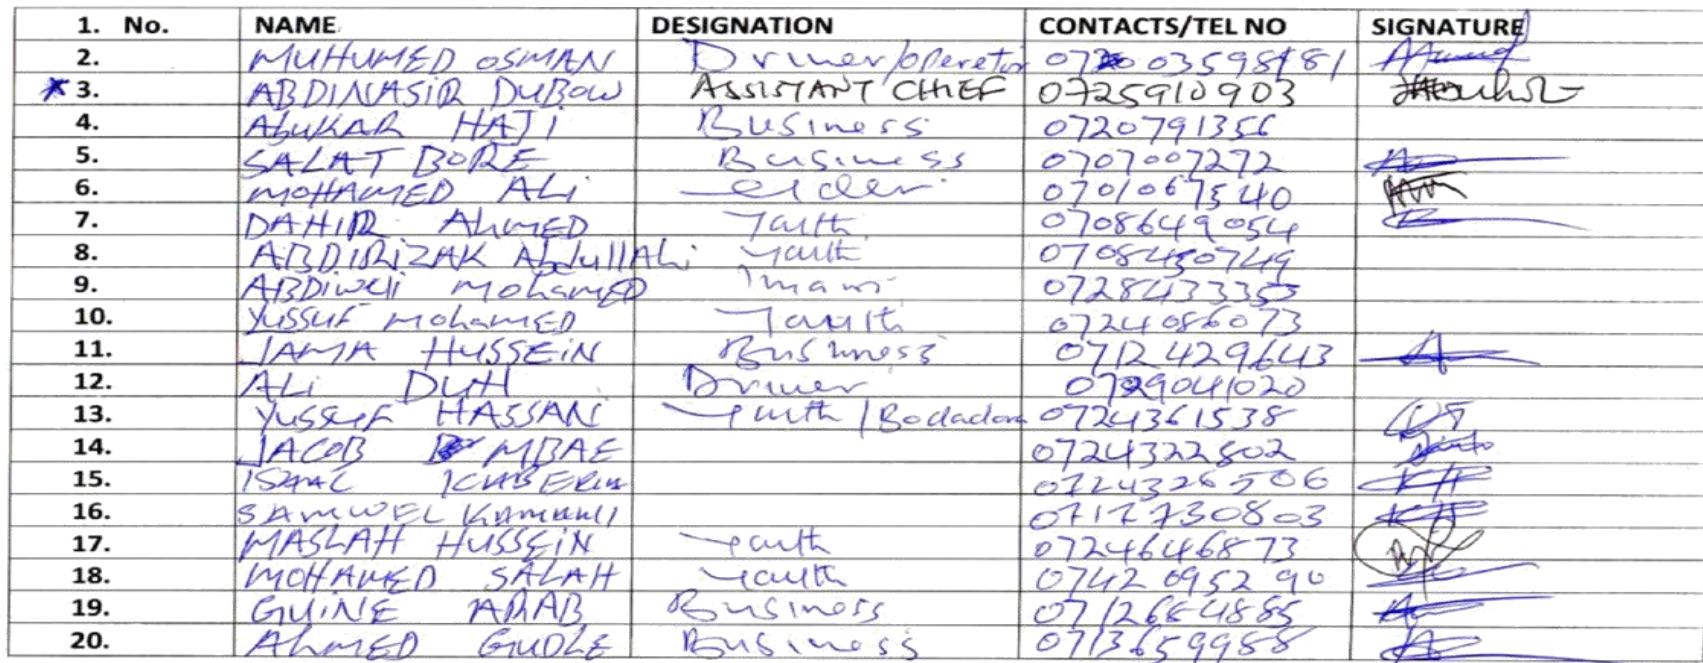 1. No. NAME DESIGNATION CONTACTS/TEL NO SIGNATURE
2. MUHUMED OSMAN Driver/operetor
3. ABDINASIR DUBOW ASSISTANT CHIEF 0725910903
4. Abukar HAJi Business 0720791356
5. SALAT BORE Business 0707007272
6. MOHAMED ALi elder 0701067540
7. DAHIR AhMED Youth 0708649054
8. ABDIRIZAK AbdullAhi Youth 0708450749
9. ABDiweli mohamED Imam 0728433353
10. Yussuf mohamED Youth 0724086073
11. JAMA HUSSEiN Business 0712429643
12. ALi DUH Driver 0729041020
13. Yussuf HASSAN Youth / 0724361538
14. JACOB MBAE 0724322802
15. ISAAC 0724326506
16. SAMWEL 0717730803
17. MASLAH HUSSEiN Youth 0724646873
18. MOHAMED SALAH Youth 0742095290
19. GUiNE ARAB Business 0712684885
20. AhMED GUDLE Business 0713659988